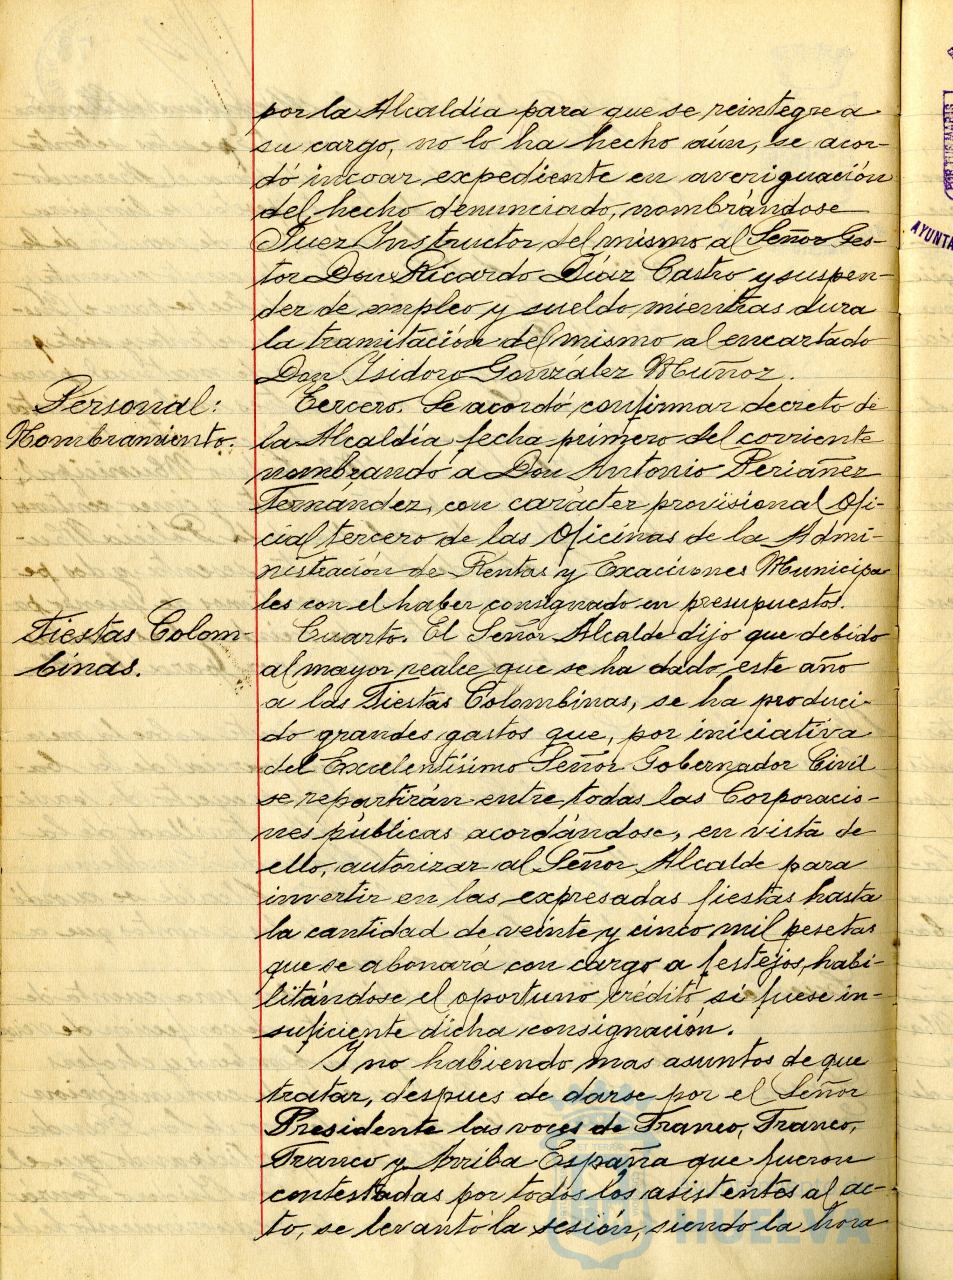 por la Alcaldía para que se reintegre a
su cargo, no lo ha hecho aún, se acor-
dó incoar expediente en averiguación
del hecho denunciado, nombrándose
Juez Ynstructor del mismo al Señor Ges-
tor Don Ricardo Díaz Castro y suspen-
der de empleo y sueldo mientras dura
la tramitación del mismo al encartado
Don Ysidoro González Muñoz.
Personal:
Nombramiento.
Tercero. Se acordó, confirmar decreto de
la Alcaldía fecha primero del corriente
nombrando a Don Antonio Periañez
Fernandez, con carácter provisional Ofi-
cial tercero de las Oficinas de la Admi-
nistración de Rentas y Exacciones Municipa
les con el haber consignado en presupuestos.
Fiestas Colom-
binas.
Cuarto. El Señor Alcalde dijo que debido
al mayor realce que se ha dado este año
a las Fiestas Colombinas, se ha produci-
do grandes gastos que, por iniciativa
del Excelentísimo Señor Gobernador Civil
se repartirán entre todas las Corporacio-
nes públicas acordándose, en vista de
ello, autorizar al Señor Alcalde para
invertir en las expresadas fiestas hasta
la cantidad de veinte y cinco mil pesetas
que se abonará con cargo a festejos, habi-
litándose el oportuno crédito si fuese in-
suficiente dicha consignación.
Y no habiendo mas asuntos de que
tratar, despues de darse por el Señor
Presidente las voces de Franco, Franco,
Franco y Arriba España que fueron
contestadas por todos los asistentes al ac-
to, se levantó la sesión, siendo la hora
HUELVA
AYUNTA